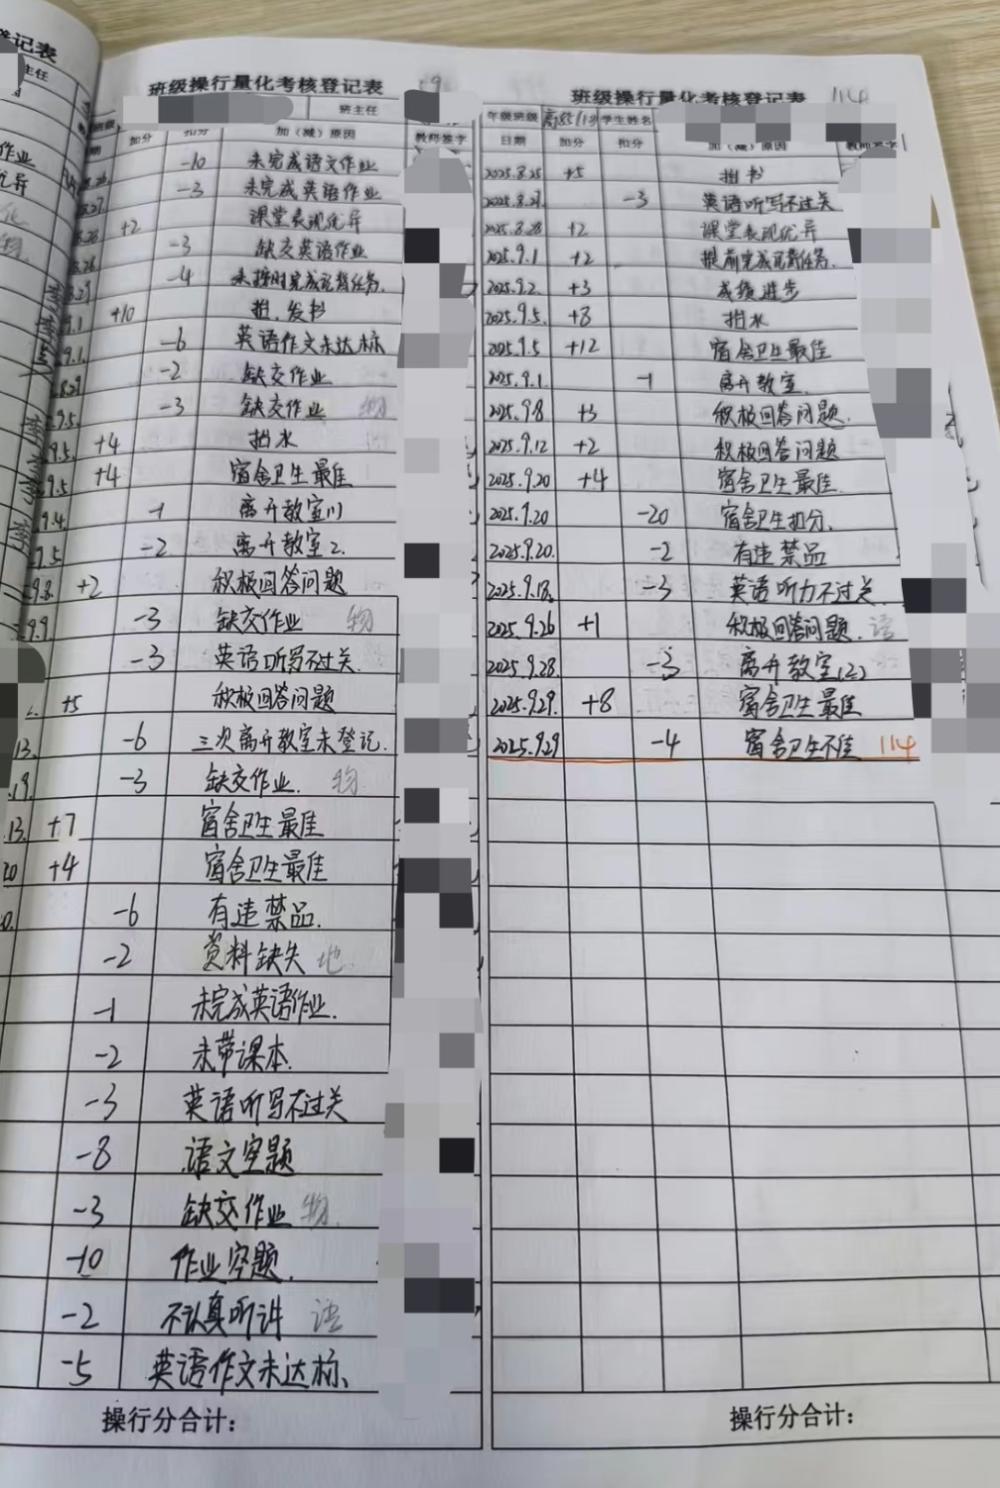 登记表
主任
作业
优异
班级操行量化考核登记表
班主任
加分 扣分 加（减）原因 教师签字
-10 未完成语文作业
-3 未完成英语作业
+2 课堂表现优异
-3 缺交英语作业
-4 未按时完成记背任务.
+10 担.发书
9.1. -6 英语作文未达标
8.29 -2 缺交作业
9.5. -3 缺交作业 物
9.5. +4 担水
9.5 +4 宿舍卫生最佳
9.4. -1 离开教室(1)
9.5. -2 离开教室2.
9.8. +2 积极回答问题
9.9. -3 缺交作业 物
-3 英语听写不过关.
+5 积极回答问题
13. -6 三次离开教室未登记.
19. -3 缺交作业. 物.
13. +7 宿舍卫生最佳
20 +4 宿舍卫生最佳
-6 有违禁品.
-2 资料缺失 地
-1 未完成英语作业.
-2 未带课本.
-3 英语听写不过关
-8 语文空题
-3 缺交作业 物.
-10 作业空题.
-2 不认真听讲 语
-5 英语作文未达标、
操行分合计：
班级操行量化考核登记表 114
年级班级 学生姓名
日期 加分 扣分 加（减）原因 教师签字
2025.8.25 +5 担书
2025.8.27. -3 英语听写不过关
2025.8.28 +2 课堂表现优异
2025.9.1 +2 提前完成记背任务.
2025.9.2. +3 成绩进步
2025.9.5. +8 担水
2025.9.5 +12 宿舍卫生最佳
2025.9.1. -1 离开教室.
2025.9.8 +3 积极回答问题.
2025.9.12 +2 积极回答问题
2025.9.20 +4 宿舍卫生最佳.
2025.9.20. -20 宿舍卫生扣分.
2025.9.20. -2 有违禁品
2025.9.18. -3 英语听力不过关.
2025.9.26 +1 积极回答问题. 语
2025.9.28. -3 离开教室(2)
2025.9.29. +8 宿舍卫生最佳
2025.9.29 -4 宿舍卫生不佳 114
操行分合计：